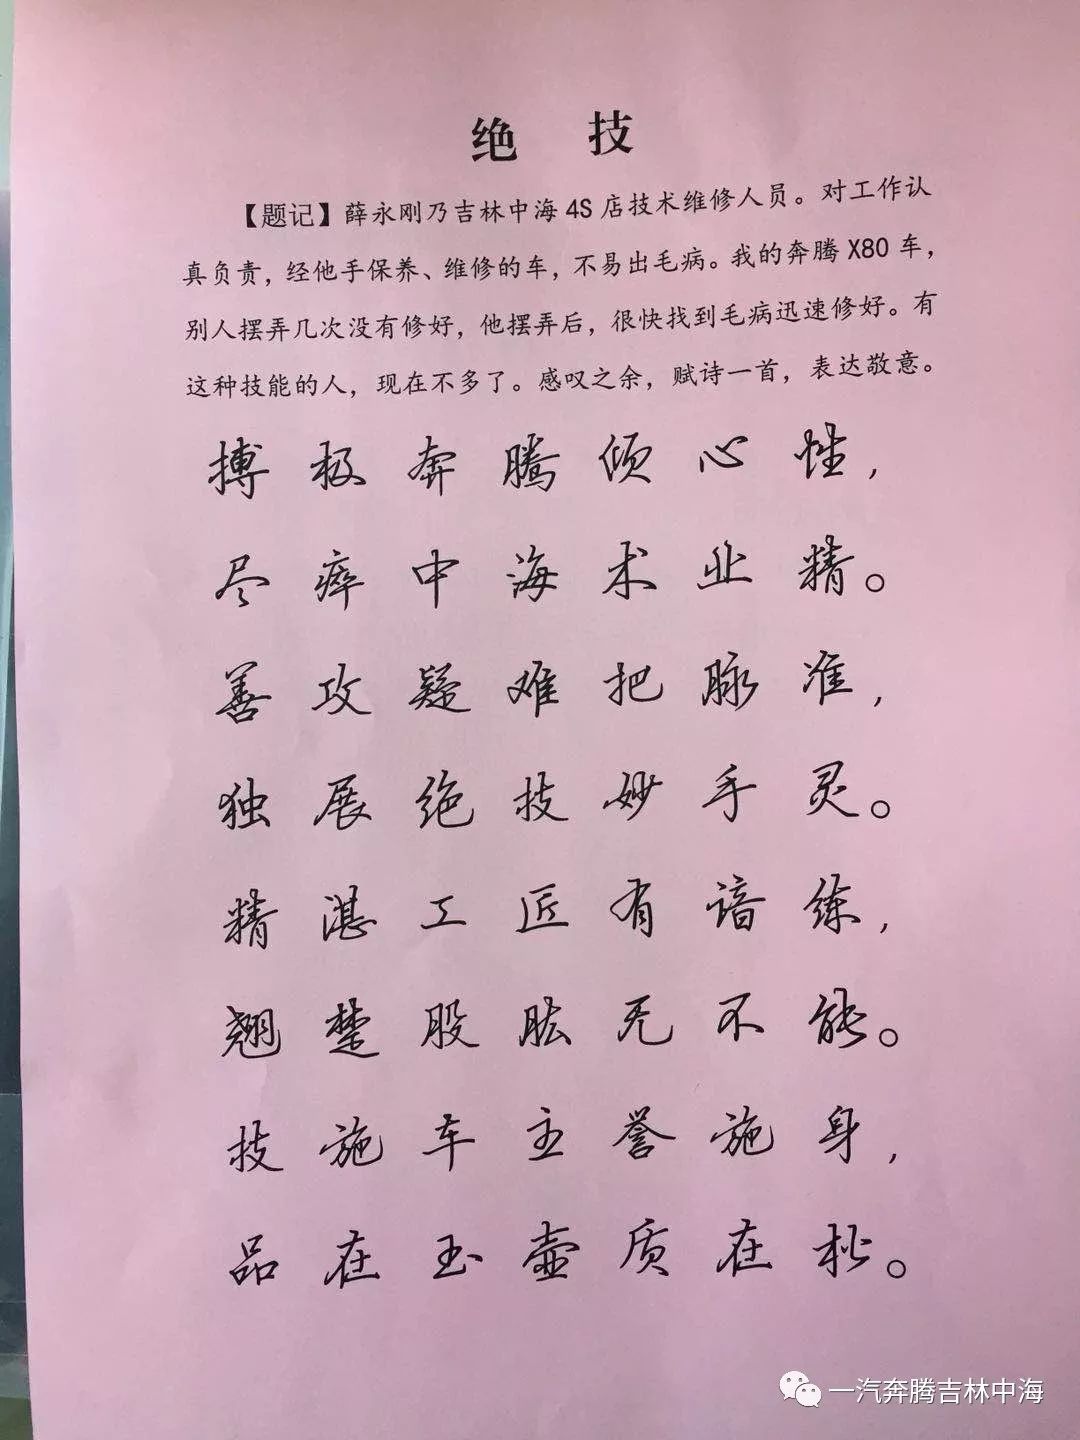 绝 技
【题记】薛永刚乃吉林中海4S店技术维修人员。对工作认
真负责，经他手保养、维修的车，不易出毛病。我的奔腾X80车，
别人摆弄几次没有修好，他摆弄后，很快找到毛病迅速修好。有
这种技能的人，现在不多了。感叹之余，赋诗一首，表达敬意。
搏极奔腾倾心性，
尽瘁中海术业精。
善攻疑难把脉准，
独展绝技妙手灵。
精湛工匠有谙练，
翘楚股肱无不能。
技施车主誉施身，
品在玉壶质在杺。
一汽奔腾吉林中海